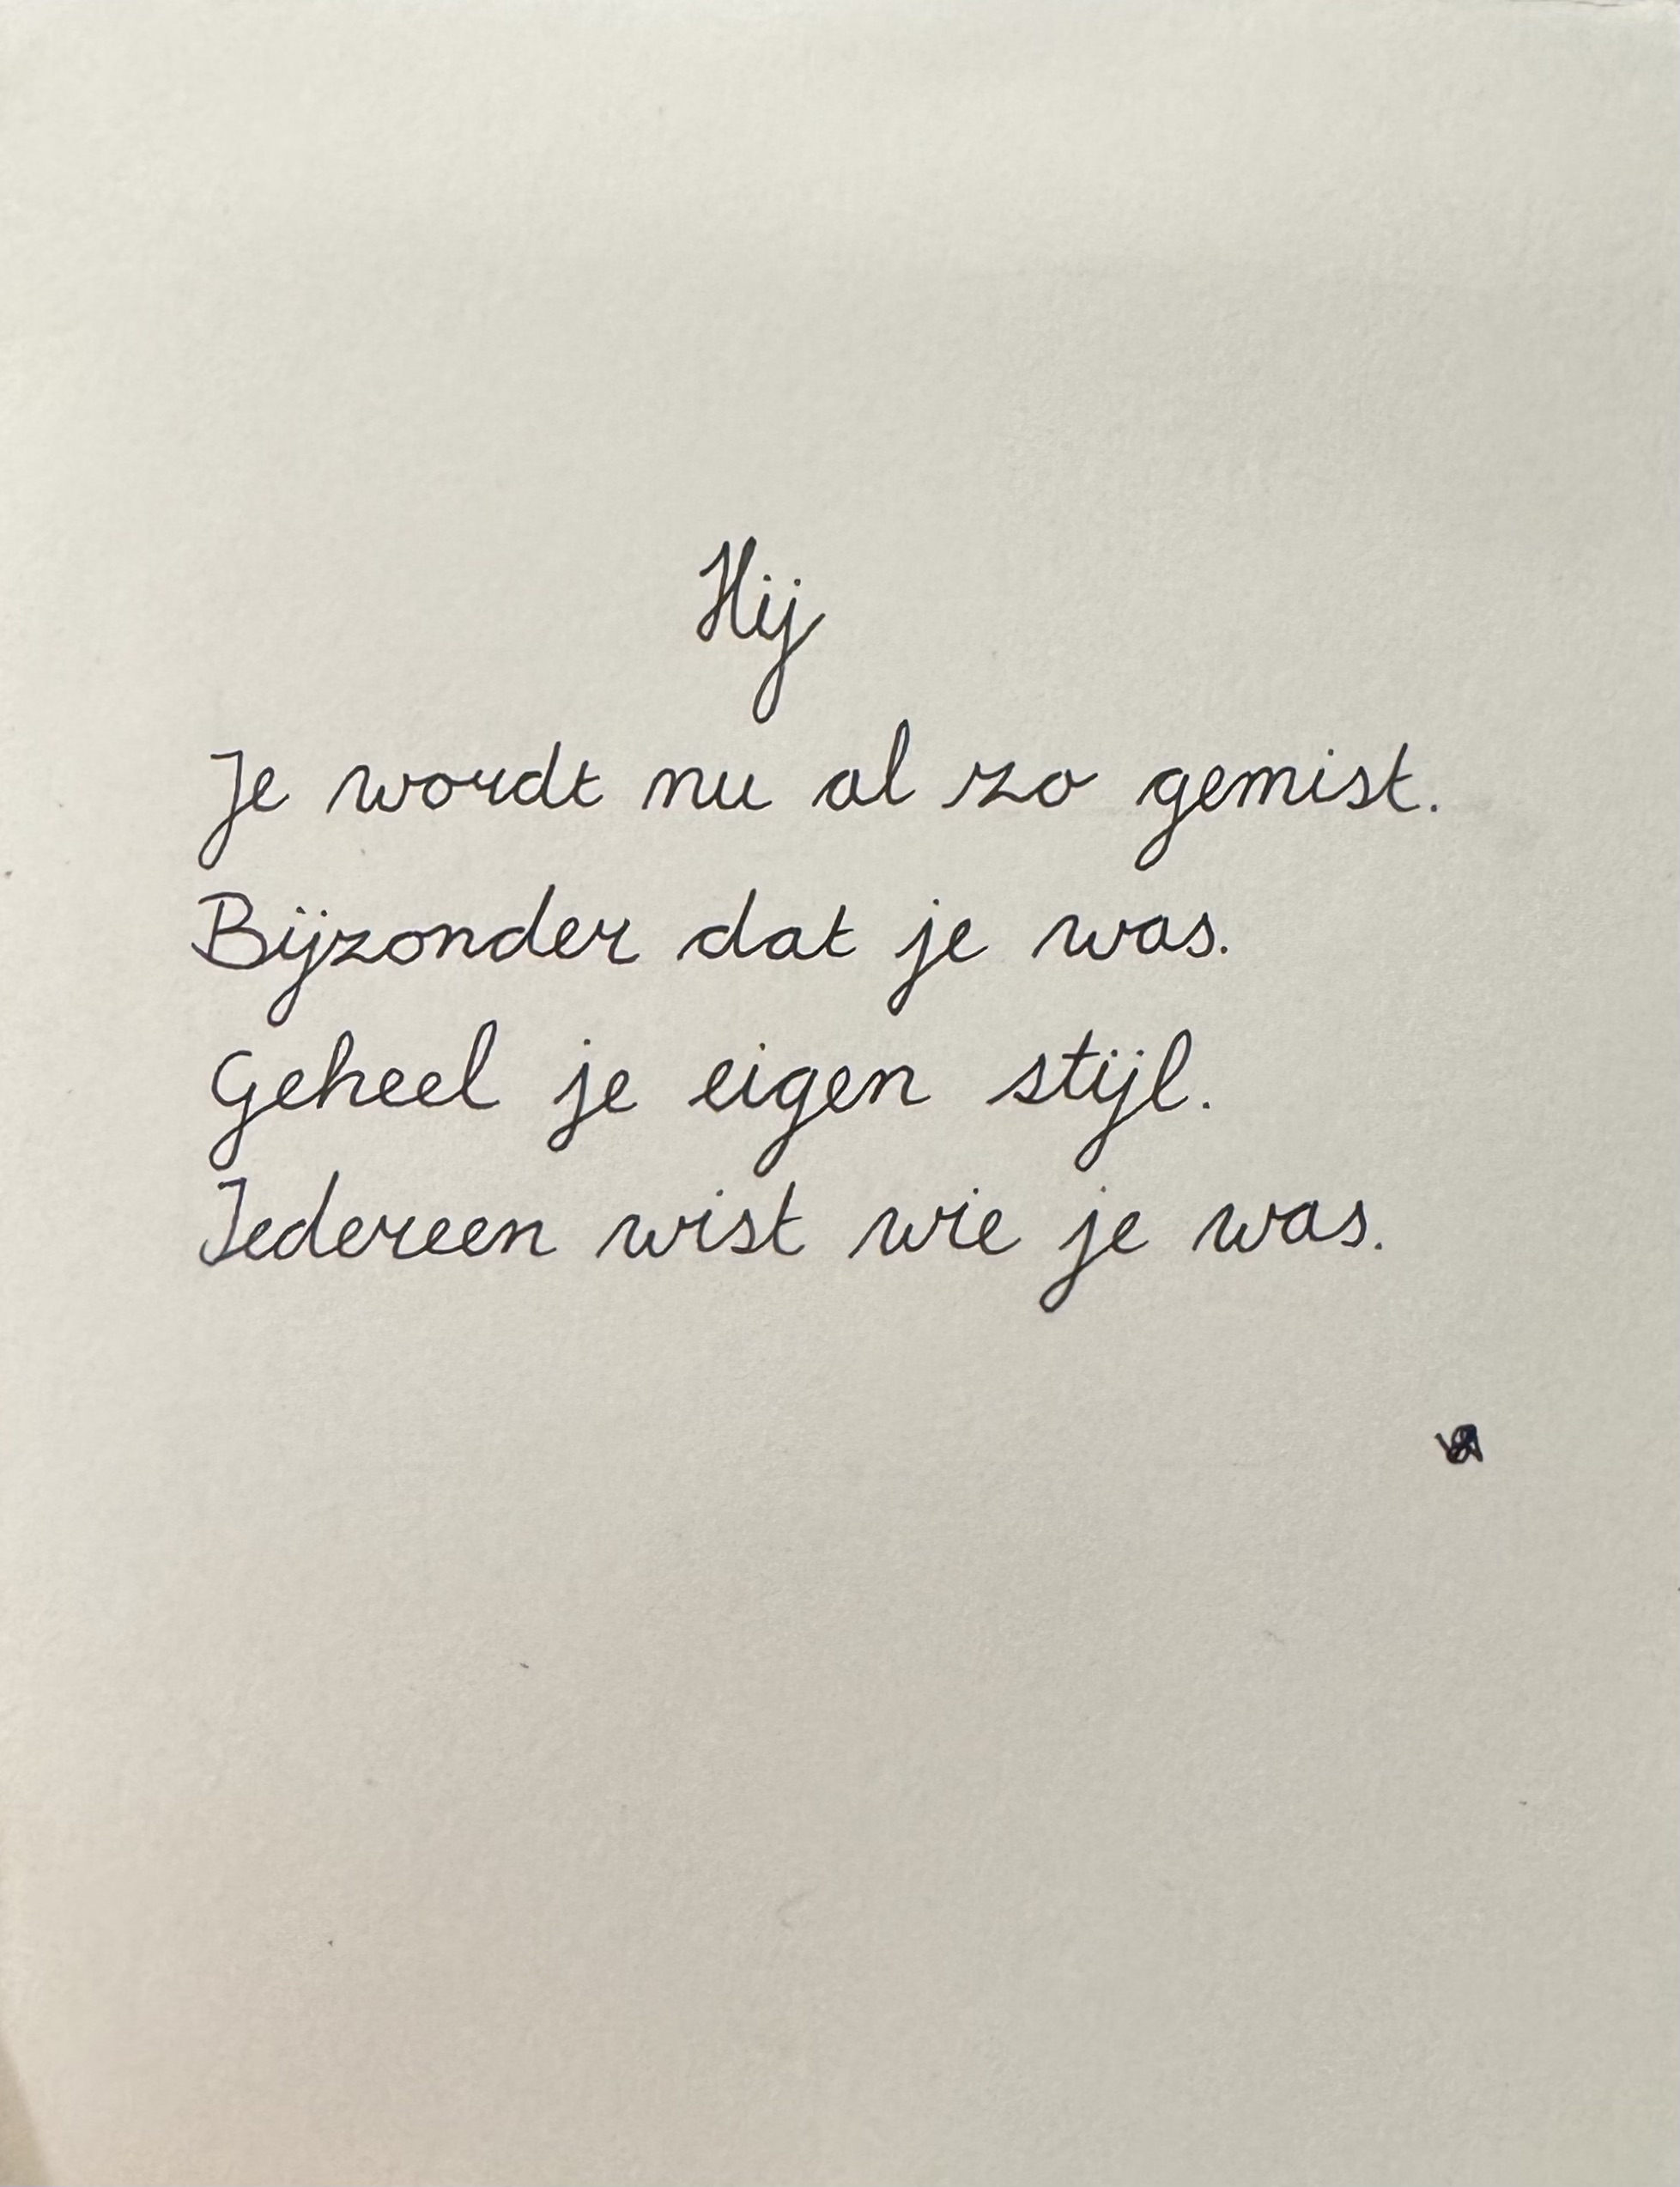 Hij
Je wordt nu al zo gemist.
Bijzonder dat je was.
Geheel je eigen stijl.
Iedereen wist wie je was.